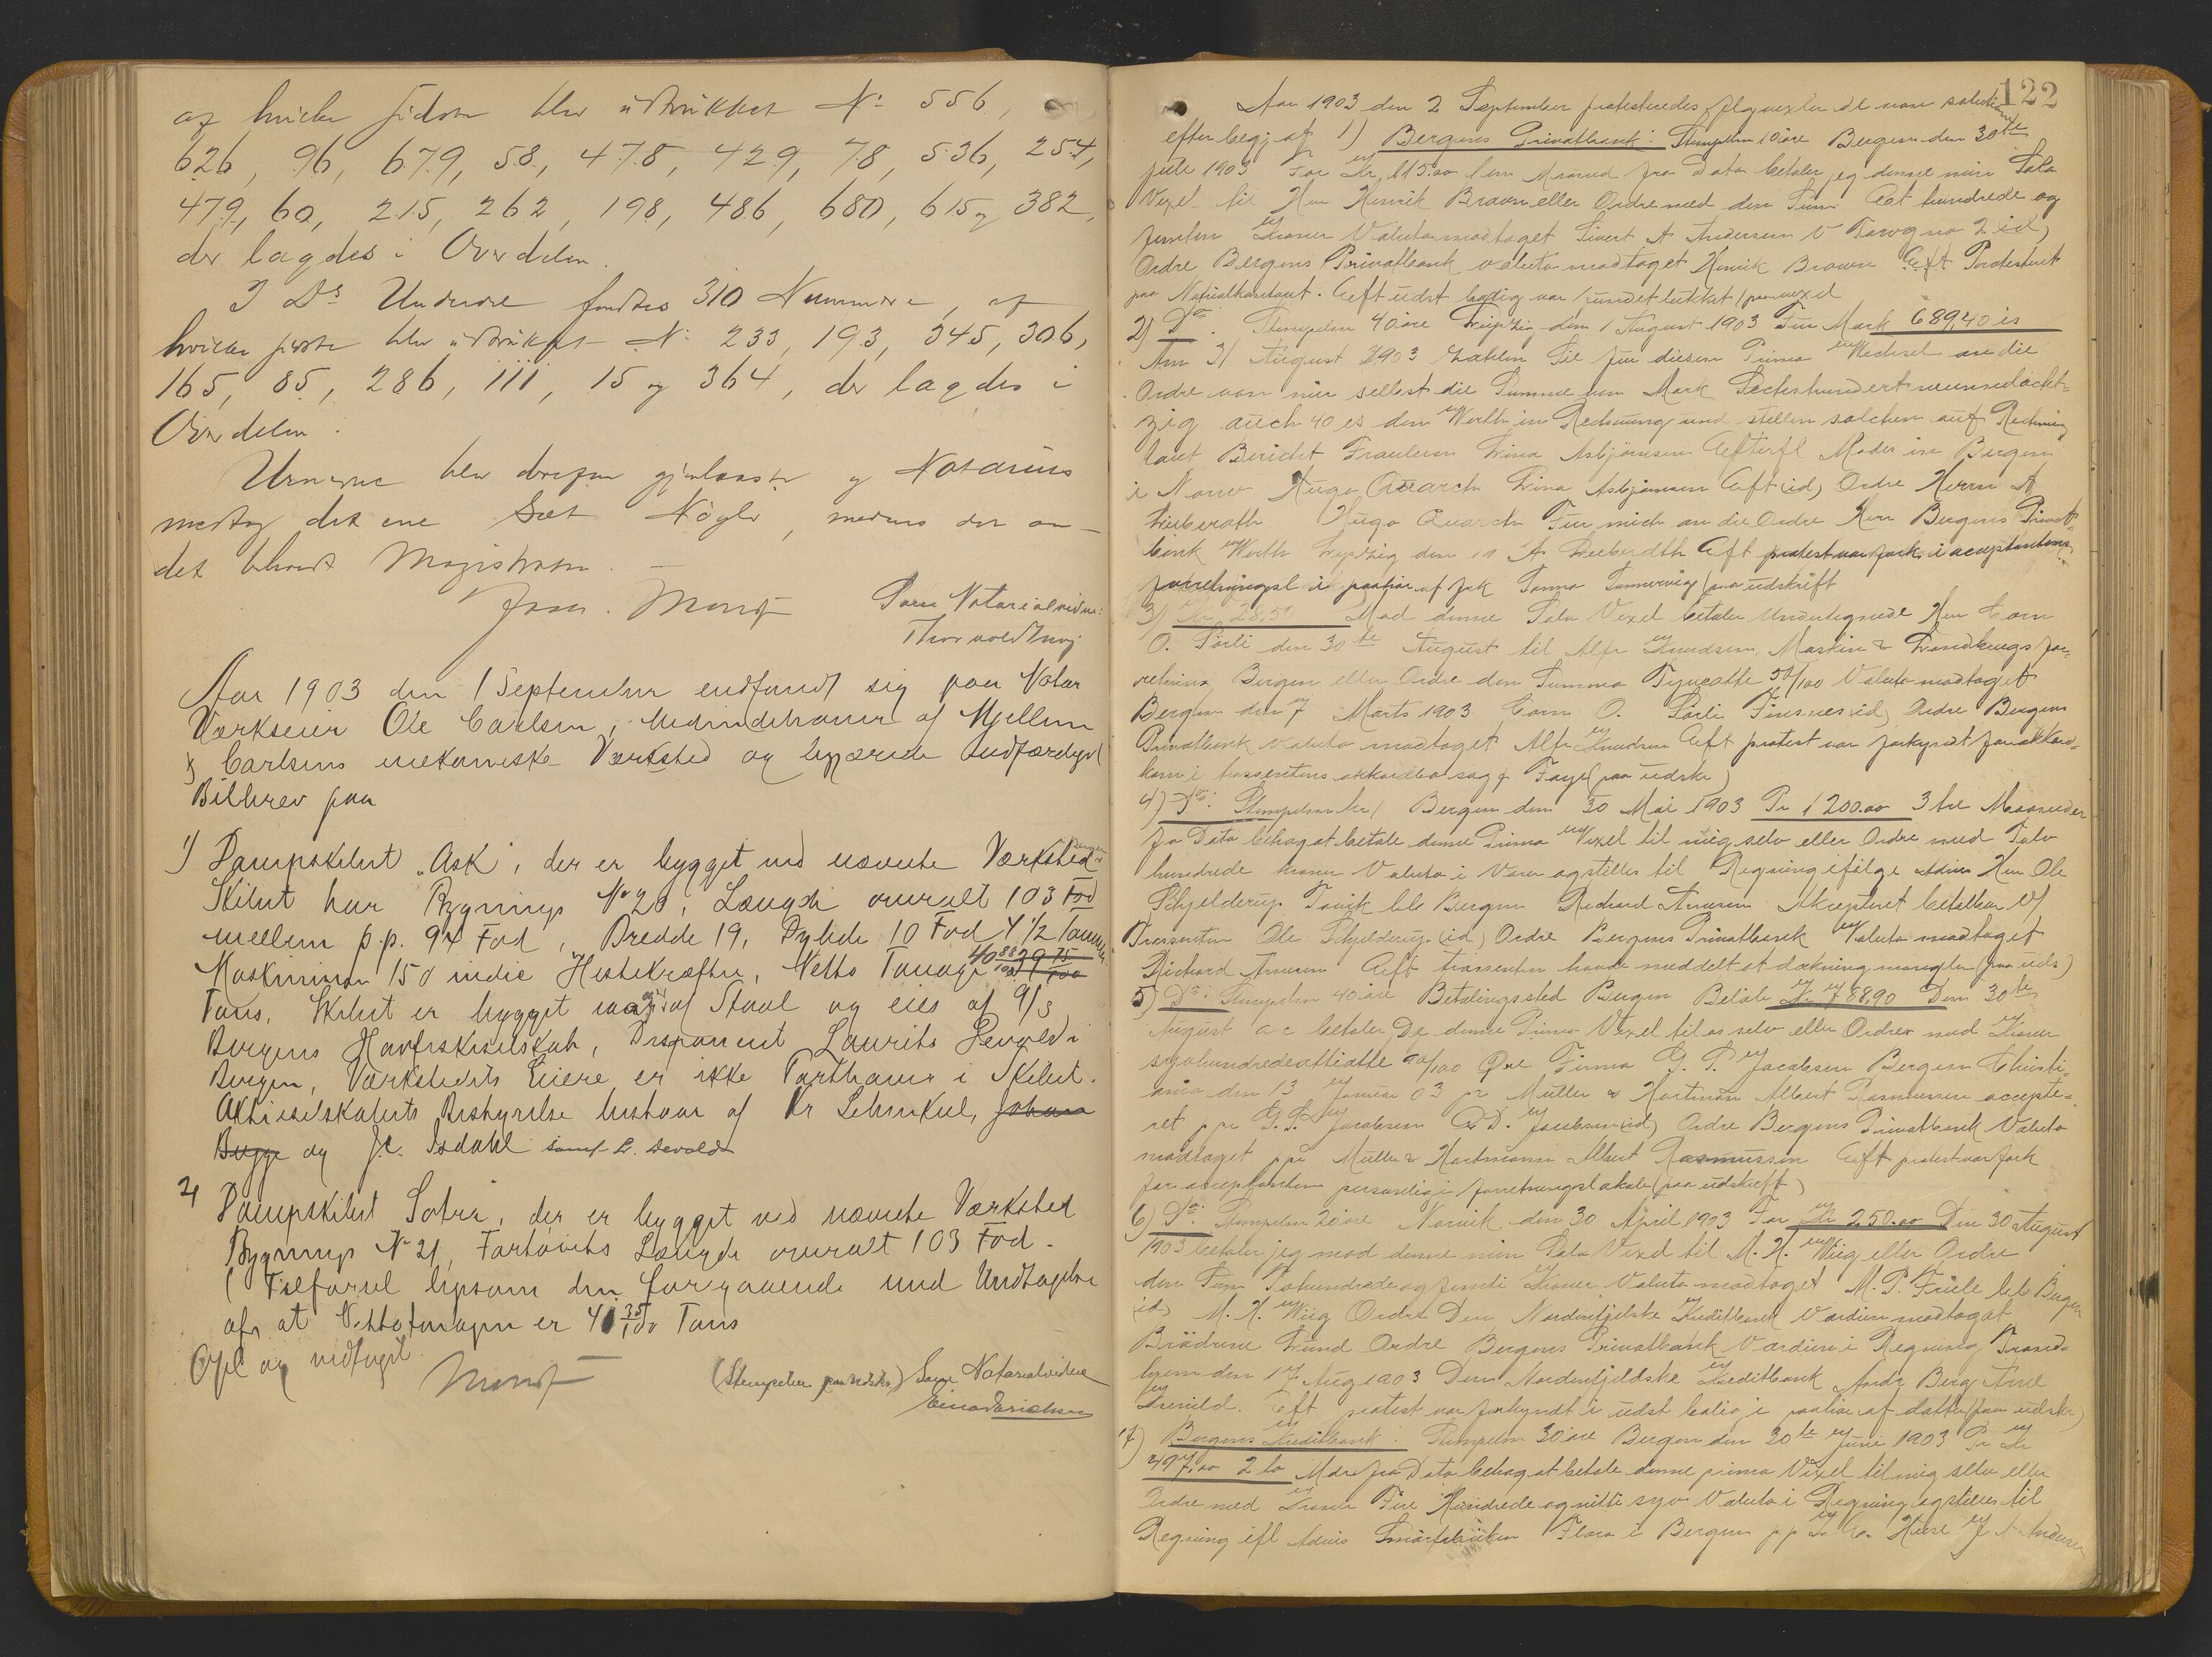 af hvilke sidste blev udtrukket No 556,
626, 96, 679, 58, 478, 429, 78, 536, 254,
479, 60, 215, 262, 198, 486, 680, 615 og 382,
der lagdes i Overdelen.
I Ds Underdel fandtes 310 Nummere, af
hvilke første blev udtrukket No 233, 193, 345, 306,
165, 85, 286, 111, 15 og 364, der lagdes i
Overdelen.
Urnerne blev derefter gjenlaaste og Notarius
modtog det ene Sæt Nøgler, medens det an-
det beholdt Magistraten. —
Som Notarialvidne:
Aar 1903 den 1 September indfandt sig paa Notar
Værkseier Ole Carlsen, Medindehaver af Mjellem
& Carlsens mekaniske Værksted og begjærede Udfærdiget
Bilbrev paa
1) Dampskibet "Ask", der er bygget ved nævnte Værksted
Skibet har Bygnings No 20, Længde overalt 103 Fod
mellem p.p. 94 Fod, Bredde 19, Dybde 10 Fod 4 1/2 Tomme
Maskineri 150 indic Hestekræfter, Netto Tonnage 40 88/100 39 75/100
Tons. Skibet er bygget af Staal og eies af A/S
Bergens Havfiskeselskab, Disponent Laurits Devold i
Bergen, Værkstedets Eiere er ikke Parthavere i Skibet.
Aktieselskabets Bestyrelse bestaar af Kr Lehmkuhl, Johan
Bugge og J.C. Isdahl samt L. Devold
2) Dampskibet Sotra, der er bygget ved nævnte Værksted
Bygnings No 21, Fartøiets Længde overalt 103 Fod.
(Tilførsel ligesom den foregaaende med Undtagelse
af, at Nettotonnagen er 41 35/100 Tons
Opl og vedtaget.
(Stempelen paa udskr) Som Notarialvidne
122
Aar 1903 den 2 September protesteredes flg vexler de non solutione
efter begj af 1) Bergens Privatbank: Stempelm 10 öre Bergen den 30te
juli 1903 For Kr. 115.00 1 en Maaned fra Dato betaler jeg denne min Sola
Vexel til Her Henrik Braown eller Ordre med den Sum Et hundrede og
femten Kroner Valuta modtaget Sivert A Andersen
Ordre Bergens Privatbank valuta modtaget Henrik Braown Eft Protesteret
paa Notarialkontoret.
2) Do. Stempelm 40 öre Leipzig den 1 August 1903 Für Mark 689,40 es
Am 31 August 1903 zahlen Sie für diesen Prima Wechsel an die
Ordre von mir selbst die Summe von Mark Sechshundertneunundacht-
zig auch 40 es den Werth in Rechnung und stellen solchen auf Rechnung
laut Bericht Fraulein Lina Asbjörnsen Efterfl Modes in Bergen
i Norw Hugo Quarch Lina Asbjörnsen Eft (id) Ordre Herrn A
Hugo Quarch Für mich an die Ordre Herr Bergens Privat-
bank Werth Leipzig den Eft protest var fork i acceptantens
(paa udskrift
3) Kr 28,50 Mod denne Sola Vexel betaler Undertegnede Her Corn
O. Sörli den 30te August til Alfr Knudsen, Maskin & Landbrugsfor-
retning Bergen eller Ordre den Summa Tyveotte 50/100 Valuta modtaget
Bergen den 7 Marts 1903 Corn O. Sörli Finsnes (id) Ordre Bergens
Privatbank valuta modtaget Alfr Knudsen Eft protest var forkyndt
(paa udskr)
4) Do. Stempelm kr 1 Bergen den 30 Mai 1903 Pr 1200.00 3 tre Maaneder
fra Dato behag at betale denne Prima Vexel til mig selv eller Ordre med Tolv
hundrede kroner Valuta i Varer og stilles til Regning ifölge Advis Her Ole
Schjelderup Bergen Richard Arnesen Akcepteret betalbar
Trassenten Ole Schjelderup (id) Ordre Bergens Privatbank Valuta modtaget
Richard Arnesen Eft trassenten havde meddelt at dækning mangler (paa uds)
5) Do. Stempelm 40 öre Betalingssted Bergen Belöb Kr 788.90 Den 30te
August a c betaler De denne Prima Vexel til os selv eller Ordres med Kroner
syvhundredeottiotte 90/100 Øre Firma G. P. Jacobsen Bergen Christi-
ania den 13 Januar 03 pr Müller & Hartman Albert Rasmussen accepte-
ret Jacobsen (id) Ordre Bergens Privatbank Valuta
modtaget ppa Müller & Hartmann Albert Rasmussen Eft protest var fork
for acceptanten personlig i forretningslokale (paa udskrift)
6) Do. Stempelm 20 öre Narvik den 30 April 1903 For Kr 250.00 Den 30 August
1903 betaler jeg mod denne min Sola Vexel til M. H. Wiig eller Ordre
den Sum Tohundrede og femti Kroner Valuta modtaget M. P. Friele Bergen
(id) M. H. Wiig Ordre Den Nordenfjeldske Kreditbank Værdien modtaget
Brödrene Lund Ordre Bergens Privatbank Værdien i Regning Trond-
hjem den 17 Aug 1903 Den Nordenfjeldske Kreditbank
Eft protest var forkyndt i udst bolig i paahør af datter (paa udskr)
7) Bergens Kreditbank: Stempelm 30 öre Bergen den 30te Juni 1903 Pr Kr
497.00 2 to Mdr fra Dato behag at betale denne prima Vexel til mig selv eller
Ordre med Kroner Fire Hundrede og nitti syv Valuta i Regning og stilles til
Regning ifl Advis Smörfabriken Flora i Bergen